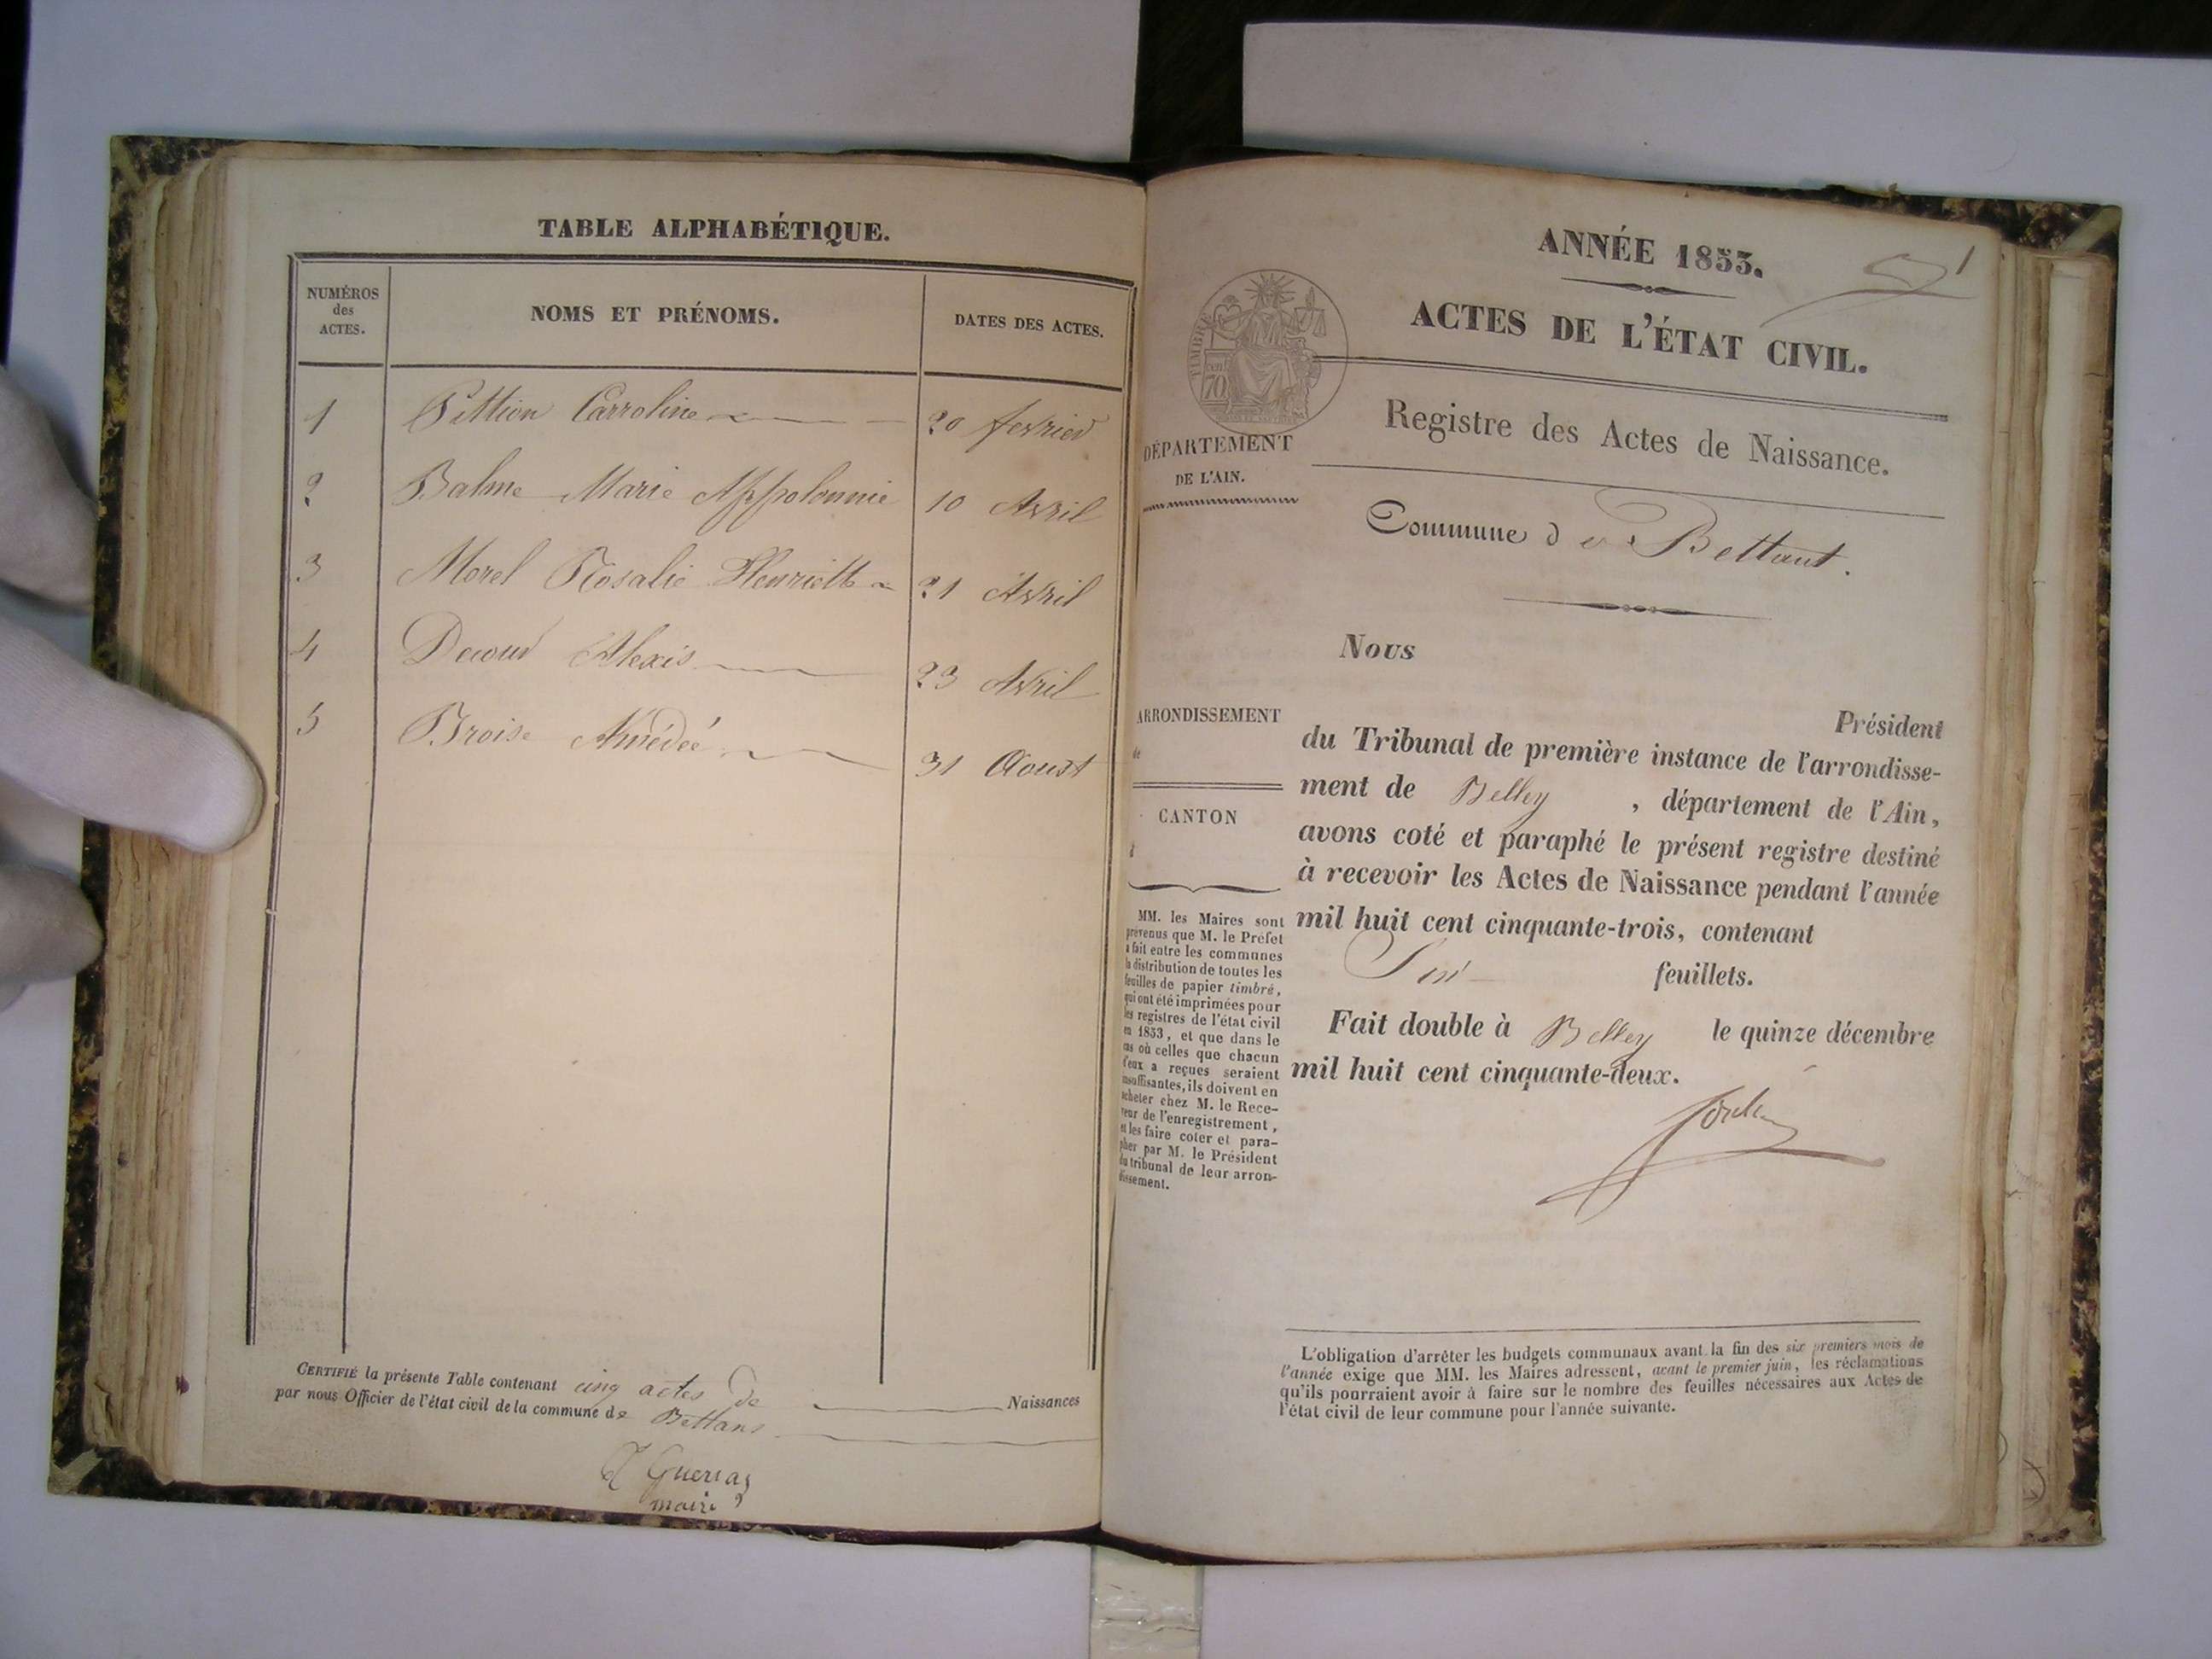 TABLE ALPHABÉTIQUE.
NUMÉROS
des
ACTES.
NOMS ET PRÉNOMS.
DATES DES ACTES.
1 Pittion Carroline 20 fevrier
2 Balme Marie Appolonnie 10 Avril
3 Morel Rosalie Henriette 21 Avril
4 Alexis 23 Avril
5 Broise Amédée 31 Aoust
CERTIFIÉ la présente Table contenant cinq actes de Naissances
par nous Officier de l'état civil de la commune de Bettans
maire
1
ANNÉE 1853.
ACTES DE L'ÉTAT CIVIL.
TIMBRE
70
Registre des Actes de Naissance.
DÉPARTEMENT
DE L'AIN.
Commune de Bettant.
Nous
Président
du Tribunal de première instance de l'arrondisse-
ment de Belley , département de l'Ain,
avons coté et paraphé le présent registre destiné
à recevoir les Actes de Naissance pendant l'année
mil huit cent cinquante-trois, contenant
feuillets.
Fait double à Belley le quinze décembre
mil huit cent cinquante-deux.
ARRONDISSEMENT
de
CANTON
MM. les Maires sont
prévenus que M. le Préfet
a fait entre les communes
la distribution de toutes les
feuilles de papier timbré,
qui ont été imprimées pour
les registres de l'état civil
en 1853, et que dans le
cas où celles que chacun
d'eux a reçues seraient
insuffisantes, ils doivent en
acheter chez M. le Rece-
veur de l'enregistrement,
et les faire coter et para-
pher par M. le Président
du tribunal de leur arron-
dissement.
L'obligation d'arrêter les budgets communaux avant la fin des six premiers mois de
l'année exige que MM. les Maires adressent, avant le premier juin, les réclamations
qu'ils pourraient avoir à faire sur le nombre des feuilles nécessaires aux Actes de
l'état civil de leur commune pour l'année suivante.